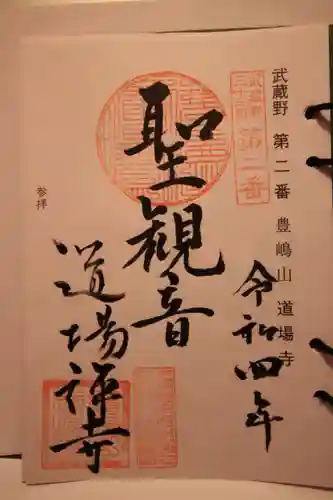 武蔵野 第二番 豊嶋山 道場寺
第二番
令和四年
聖観音
参拝
道場禅寺